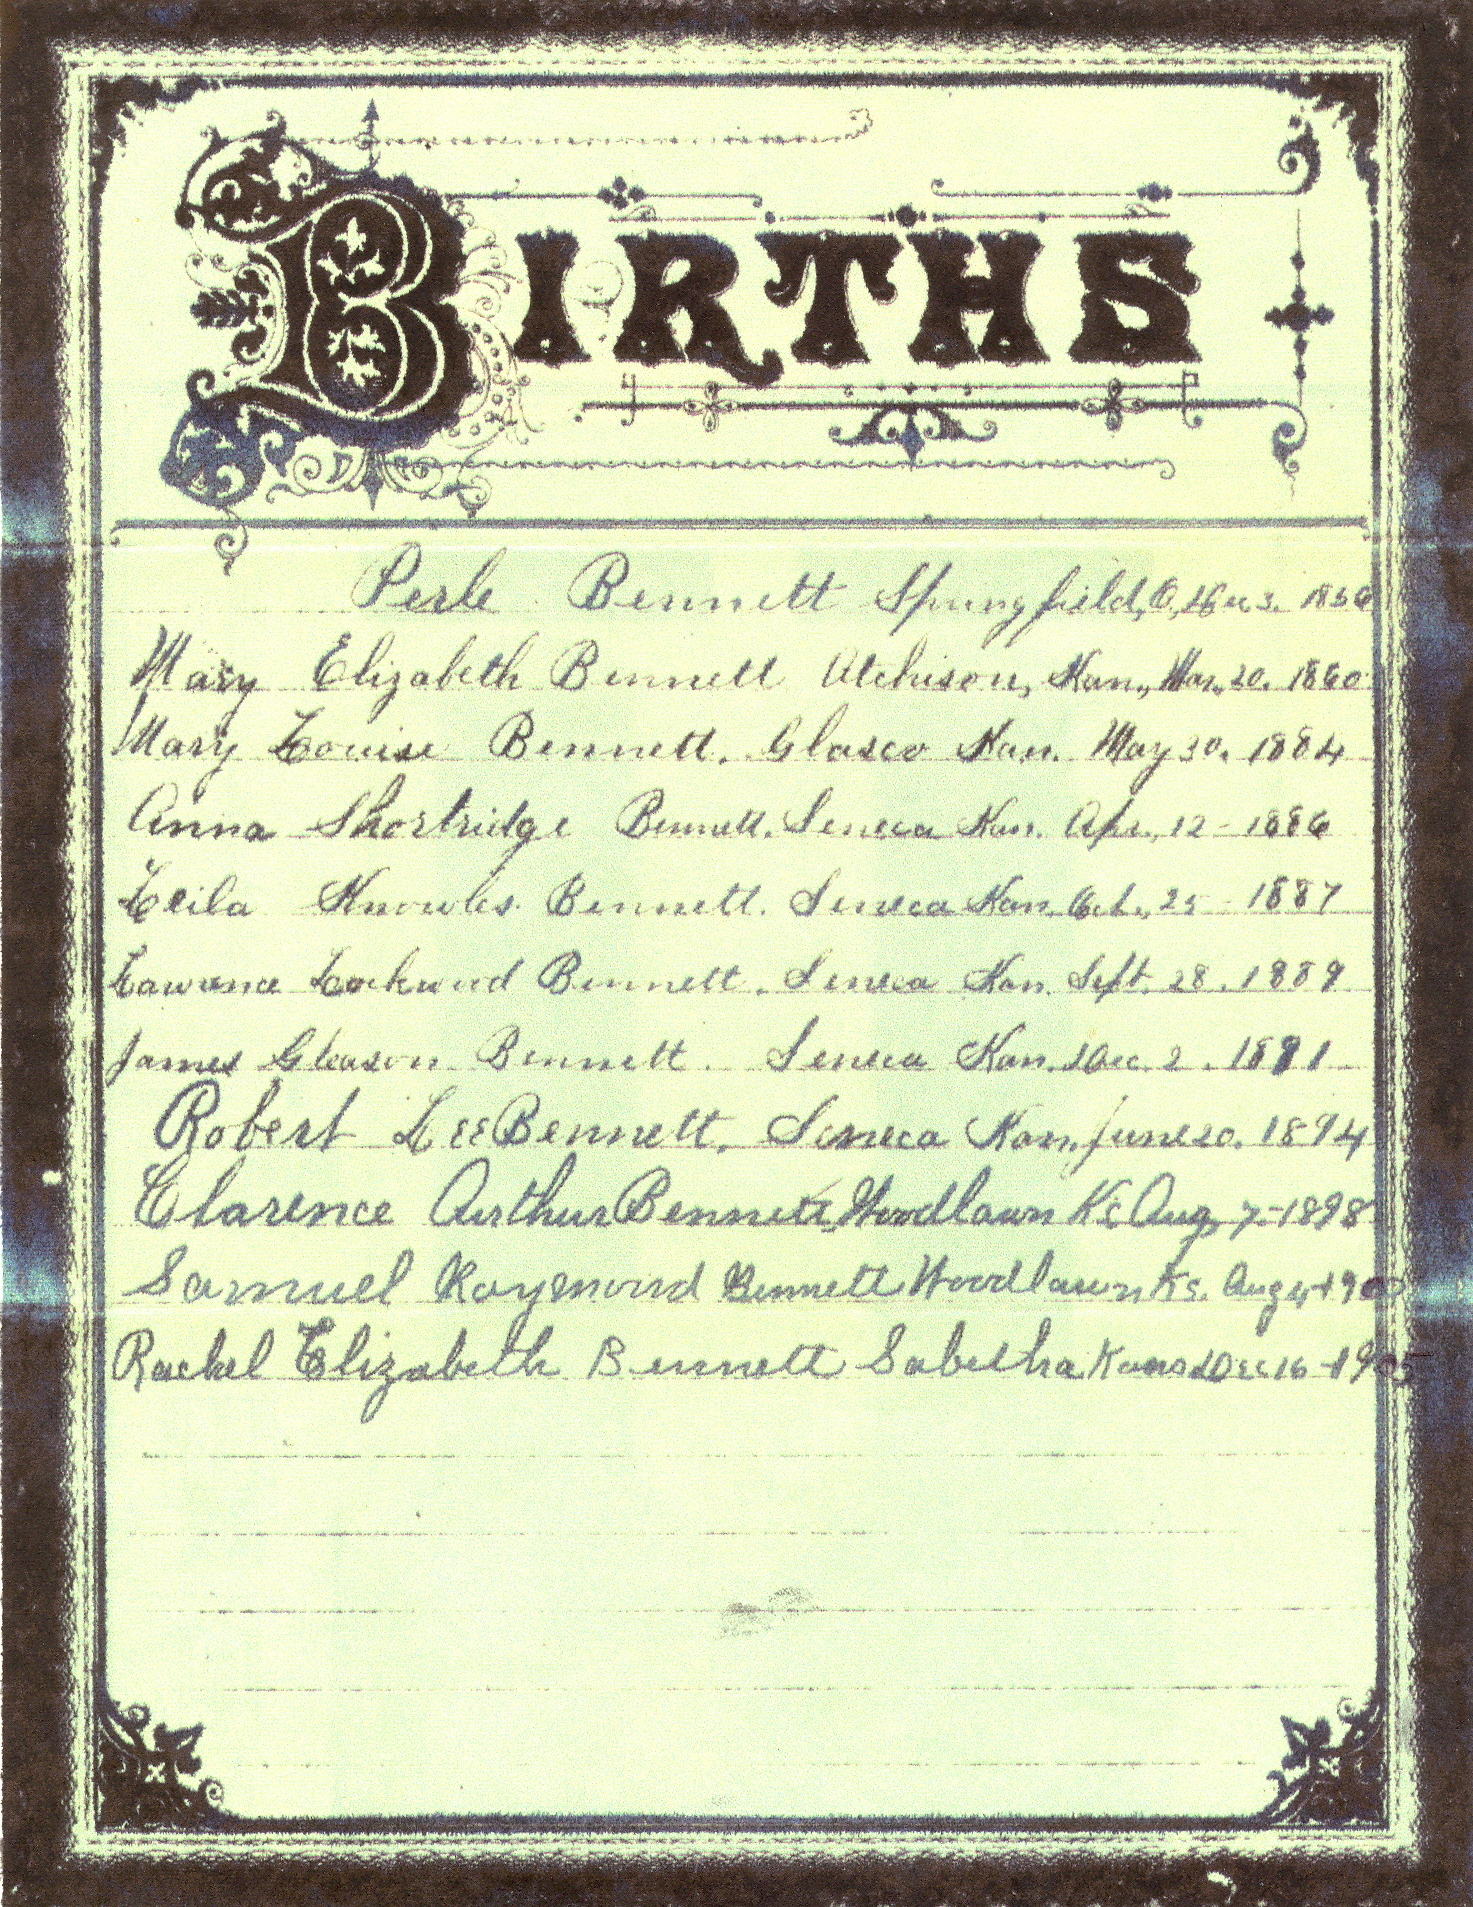 BIRTHS
Perle Bennett Springfield, O, Dec 3. 1856
Mary Elizabeth Bennett Atchison, Kan., Mar., 20. 1860.
Mary Louise Bennett. Glasco Kan. May 30. 1884
Anna Shortridge Bennett. Seneca Kan. Apr., 12 - 1886
Leila Knowles. Bennett. Seneca Kan. Oct., 25 - 1887
Lawrence Lockwood Bennett. Seneca Kan. Sept. 28. 1889
James Gleason Bennett. Seneca Kan. Dec. 2. 1891
Robert Lee Bennett. Seneca Kan. June 20. 1894
Clarence Arthur Bennett, Woodlawn Ks Aug, 7 - 1898
Samuel Raymond Bennett Woodlawn Ks. Aug 4 - 1900
Rachel Elizabeth Bennett Sabetha Kans Dec 16 - 1905